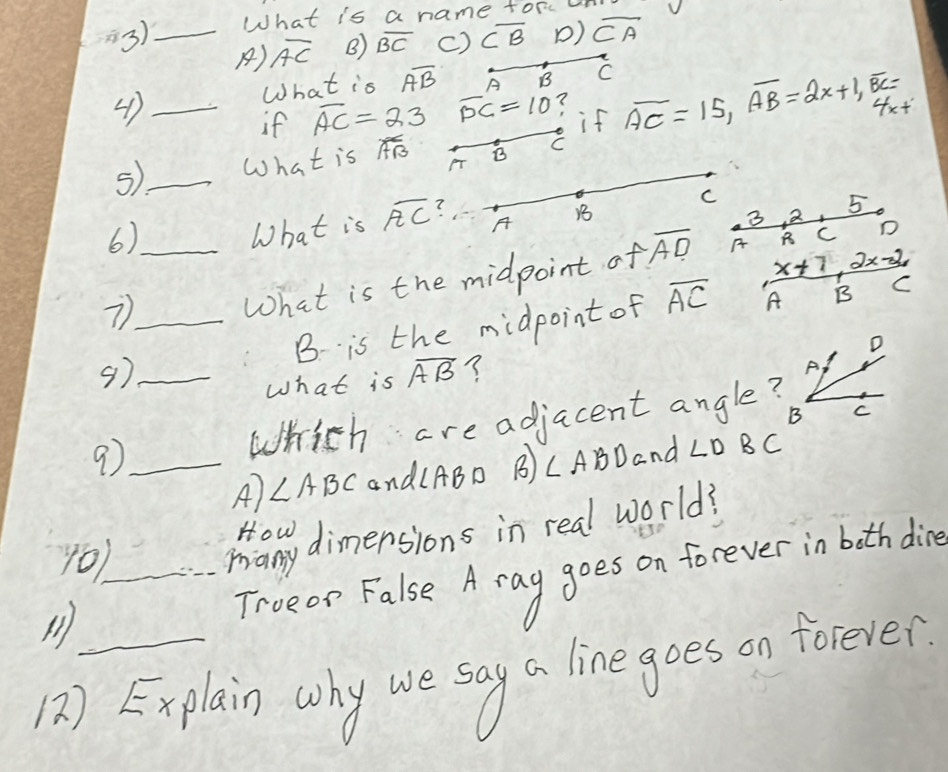 3) ___ What is a name for
A) AC B) BC C) CB D) CA
4) ___ What is AB A B C
if AC = 23 BC = 10?
5) ___ What is AB A B C if AC = 15, AB = 2x+1, BC = 4x+
6) ___ What is AC? A B C
7) ___ What is the midpoint of AD 3 2 5 A B C D
8) ___ B is the midpoint of AC x+7 2x-2 A B C
What is AB?
9) ___ Which are adjacent angle? A D B C
A) ∠ABC and ∠ABD B) ∠ABD and ∠DBC
10) ___ How many dimensions in real world?
11) ___ True or False A ray goes on forever in both dire
12) Explain why we say a line goes on forever.